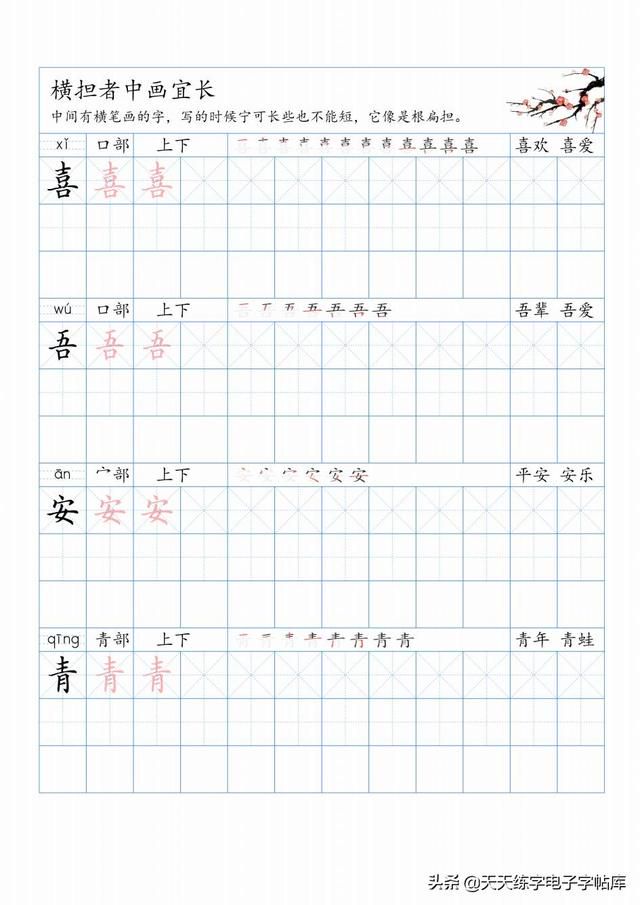 横担者中画宜长
中间有横笔画的字，写的时候宁可长些也不能短，它像是根扁担。
xǐ 口部 上下 喜欢 喜爱
喜 喜 喜
wú 口部 上下 吾辈 吾爱
吾 吾 吾
ān 宀部 上下 平安 安乐
安 安 安
qīng 青部 上下 青年 青蛙
青 青 青
头条 @天天练字电子字帖库